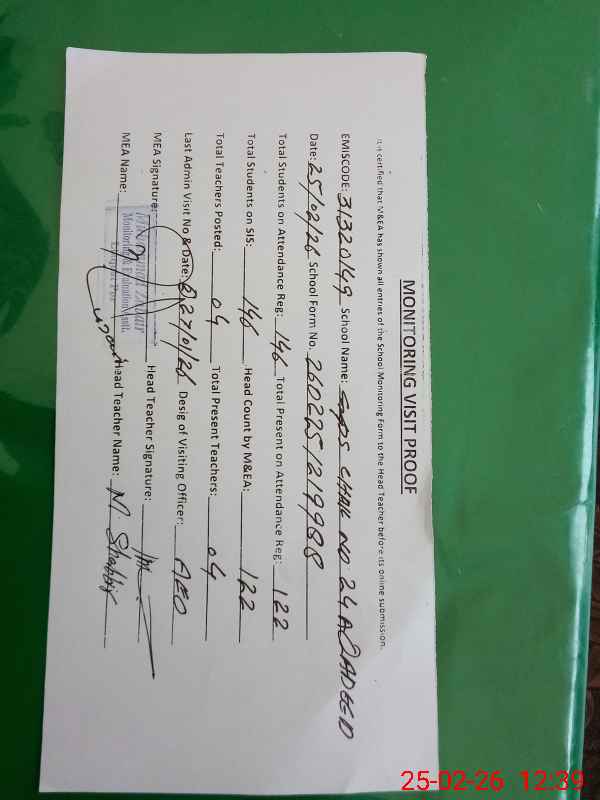 MONITORING VISIT PROOF
It is certified that M&EA has shown all entries of the School Monitoring Form to the Head Teacher before its online submission.
EMISCODE: 31320149 School Name: GPS CHAK NO 24A
Date: 25/02/26 School Form No. 260225/219988
Total Students on Attendance Reg: 146 Total Present on Attendance Reg: 122
Total Students on SIS: 146 Head Count by M&EA: 122
Total Teachers Posted: 04 Total Present Teachers: 04
Last Admin Visit No & Date: 2, 27/01/26 Desig of Visiting Officer: AEO
MEA Signature: Head Teacher Signature:
MEA Name: Head Teacher Name: M. Shabbir
Monitoring & Evaluation
25-02-26 12:39